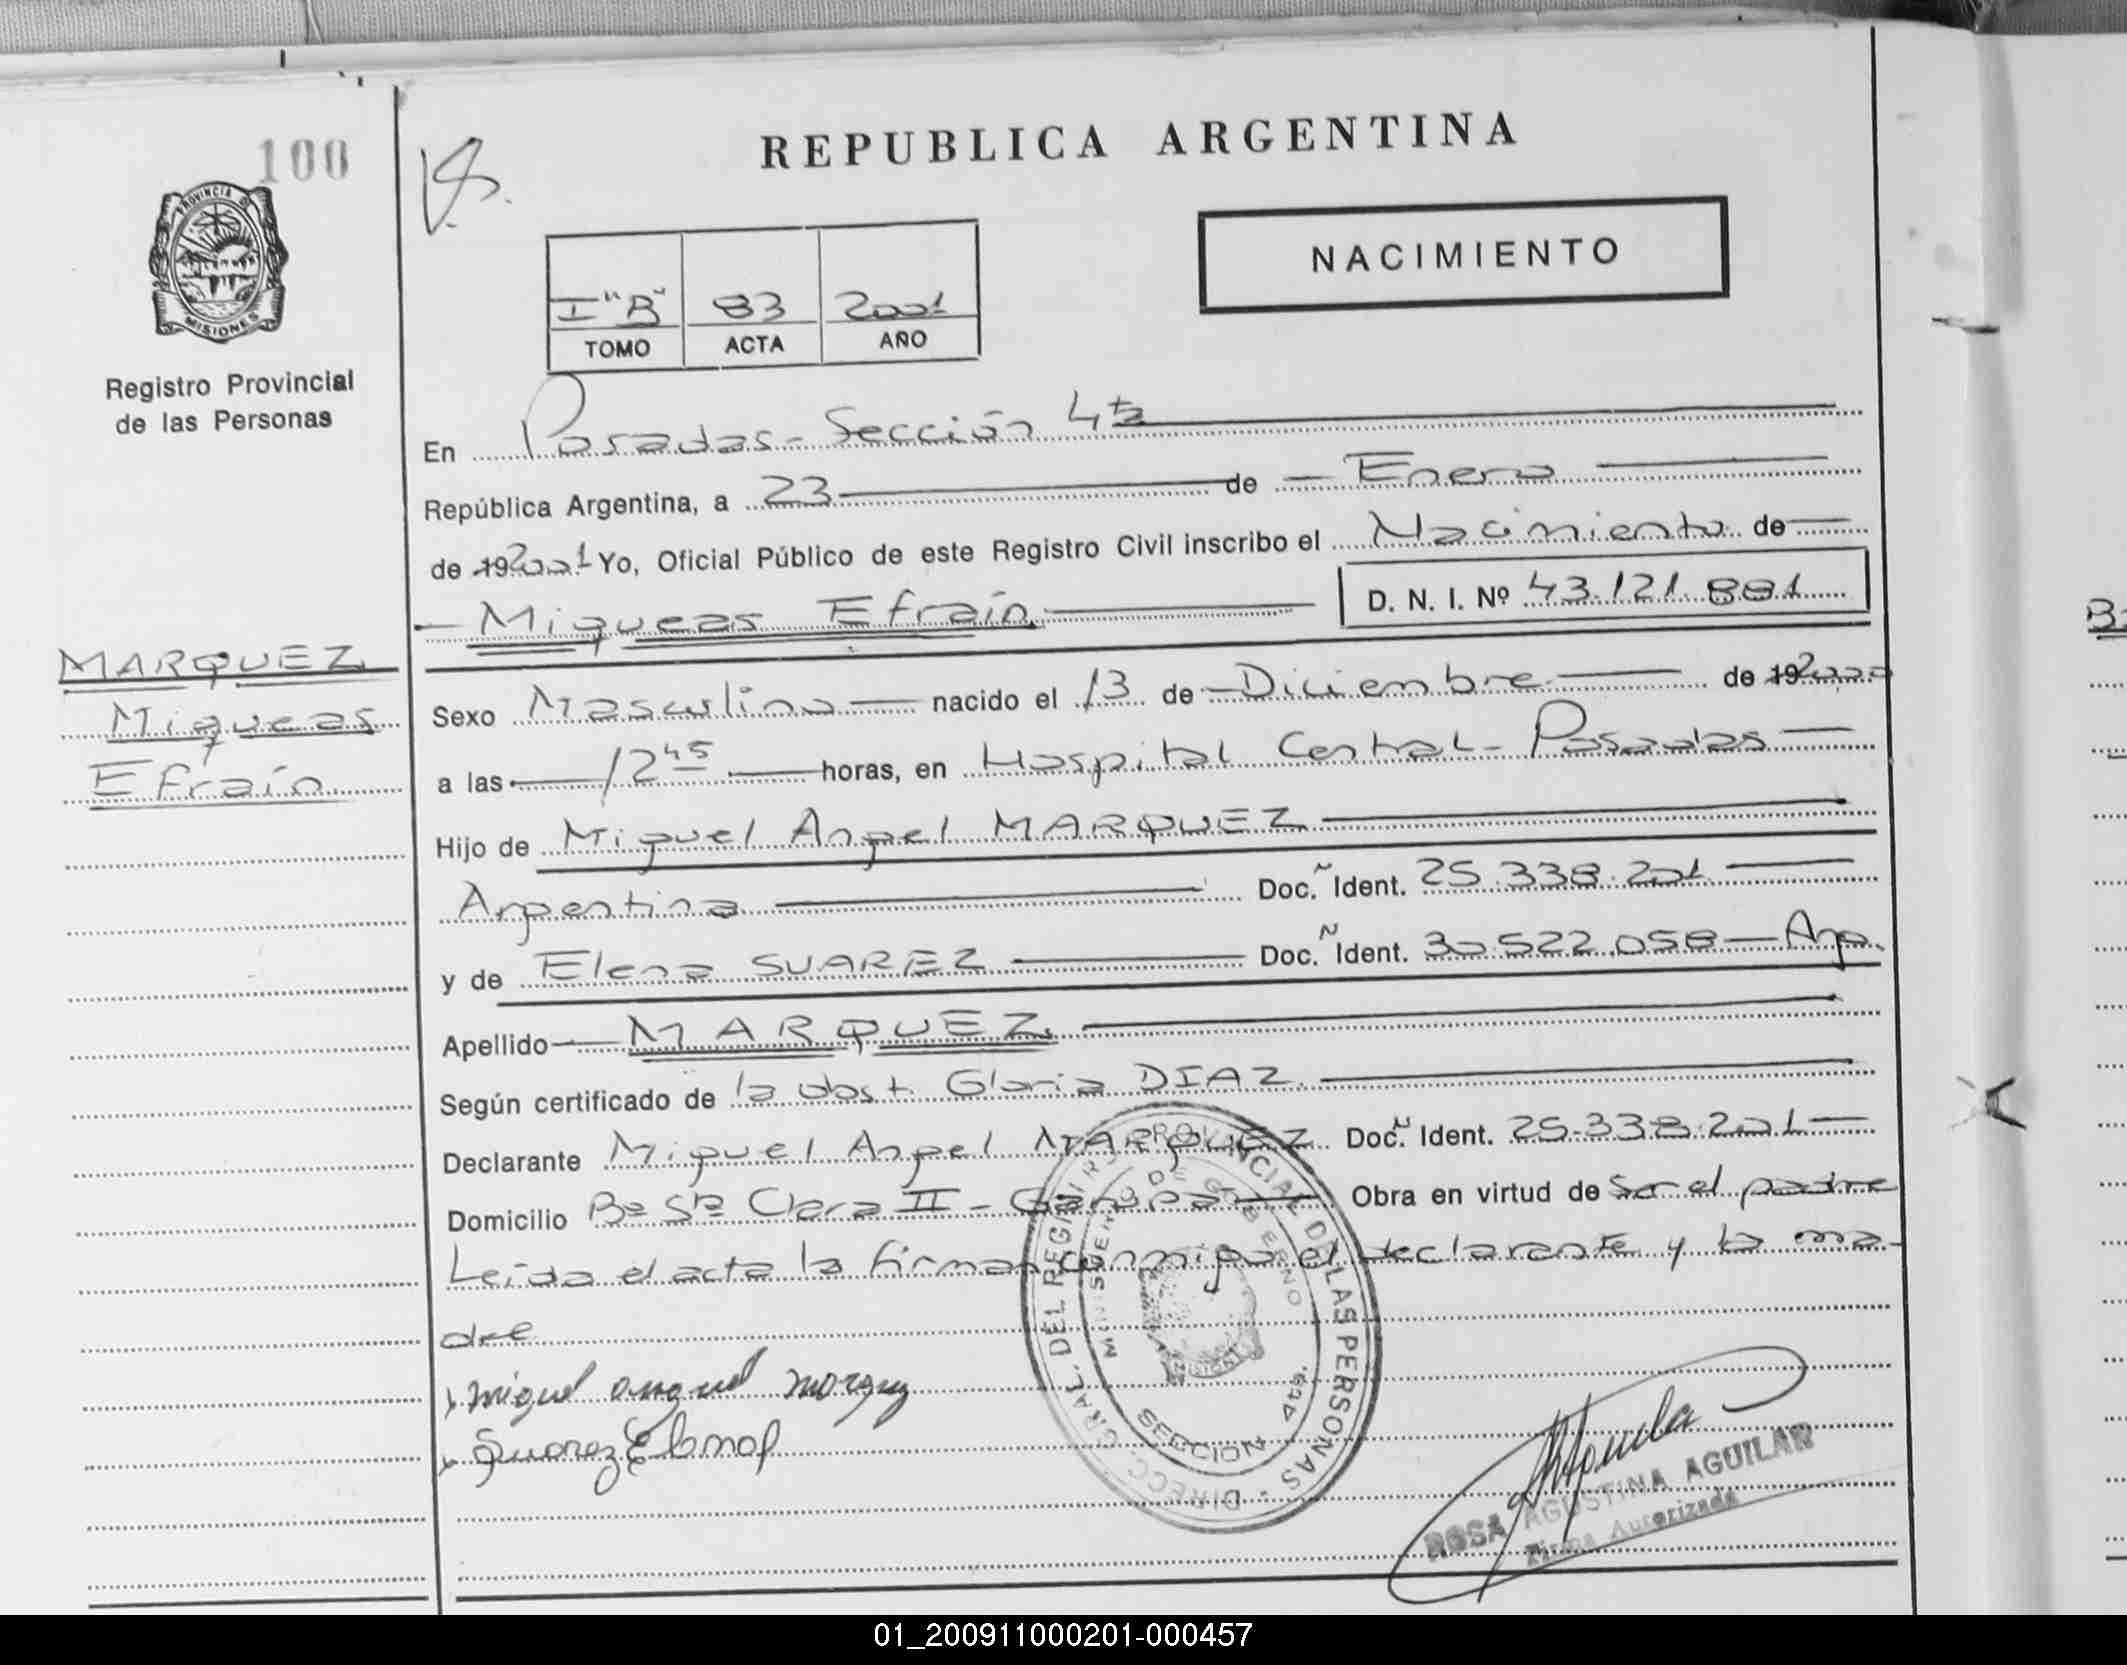 100
PROVINCIA D
MISIONES
Registro Provincial
de las Personas
MARQUEZ
Miqueas
Efraín
REPUBLICA ARGENTINA
NACIMIENTO
I "B" 83 2001
TOMO ACTA AÑO
En Posadas - Sección 4ta
República Argentina, a 23 de Enero
de 192001 Yo, Oficial Público de este Registro Civil inscribo el Nacimiento de
Miqueas Efraín D. N. I. Nº 43.121.881
Sexo Masculino nacido el 13 de Diciembre de 192000
a las 12 45 horas, en Hospital Central - Posadas
Hijo de Miguel Angel MARQUEZ
Argentina Doc. Ident. 25.338.201
y de Elena SUAREZ Doc. Ident. 30.522.058 - Arg.
Apellido MARQUEZ
Según certificado de la obst. Gloria DIAZ
Declarante Miguel Angel MARQUEZ Doc. Ident. 25.338.201
Domicilio Bº Sta Clara II - Garupá Obra en virtud de ser el padre
Leída el acta la firman conmigo el declarante y la ma-
dre
miguel anguel marquez
Suarez Elena
DIRECC. GRAL. DEL REGISTRO PROVINCIAL DE LAS PERSONAS
DE GOBIERNO
SECCION 4ta.
ROSA AGUSTINA AGUILAR
Firma Autorizada
01_200911000201-000457